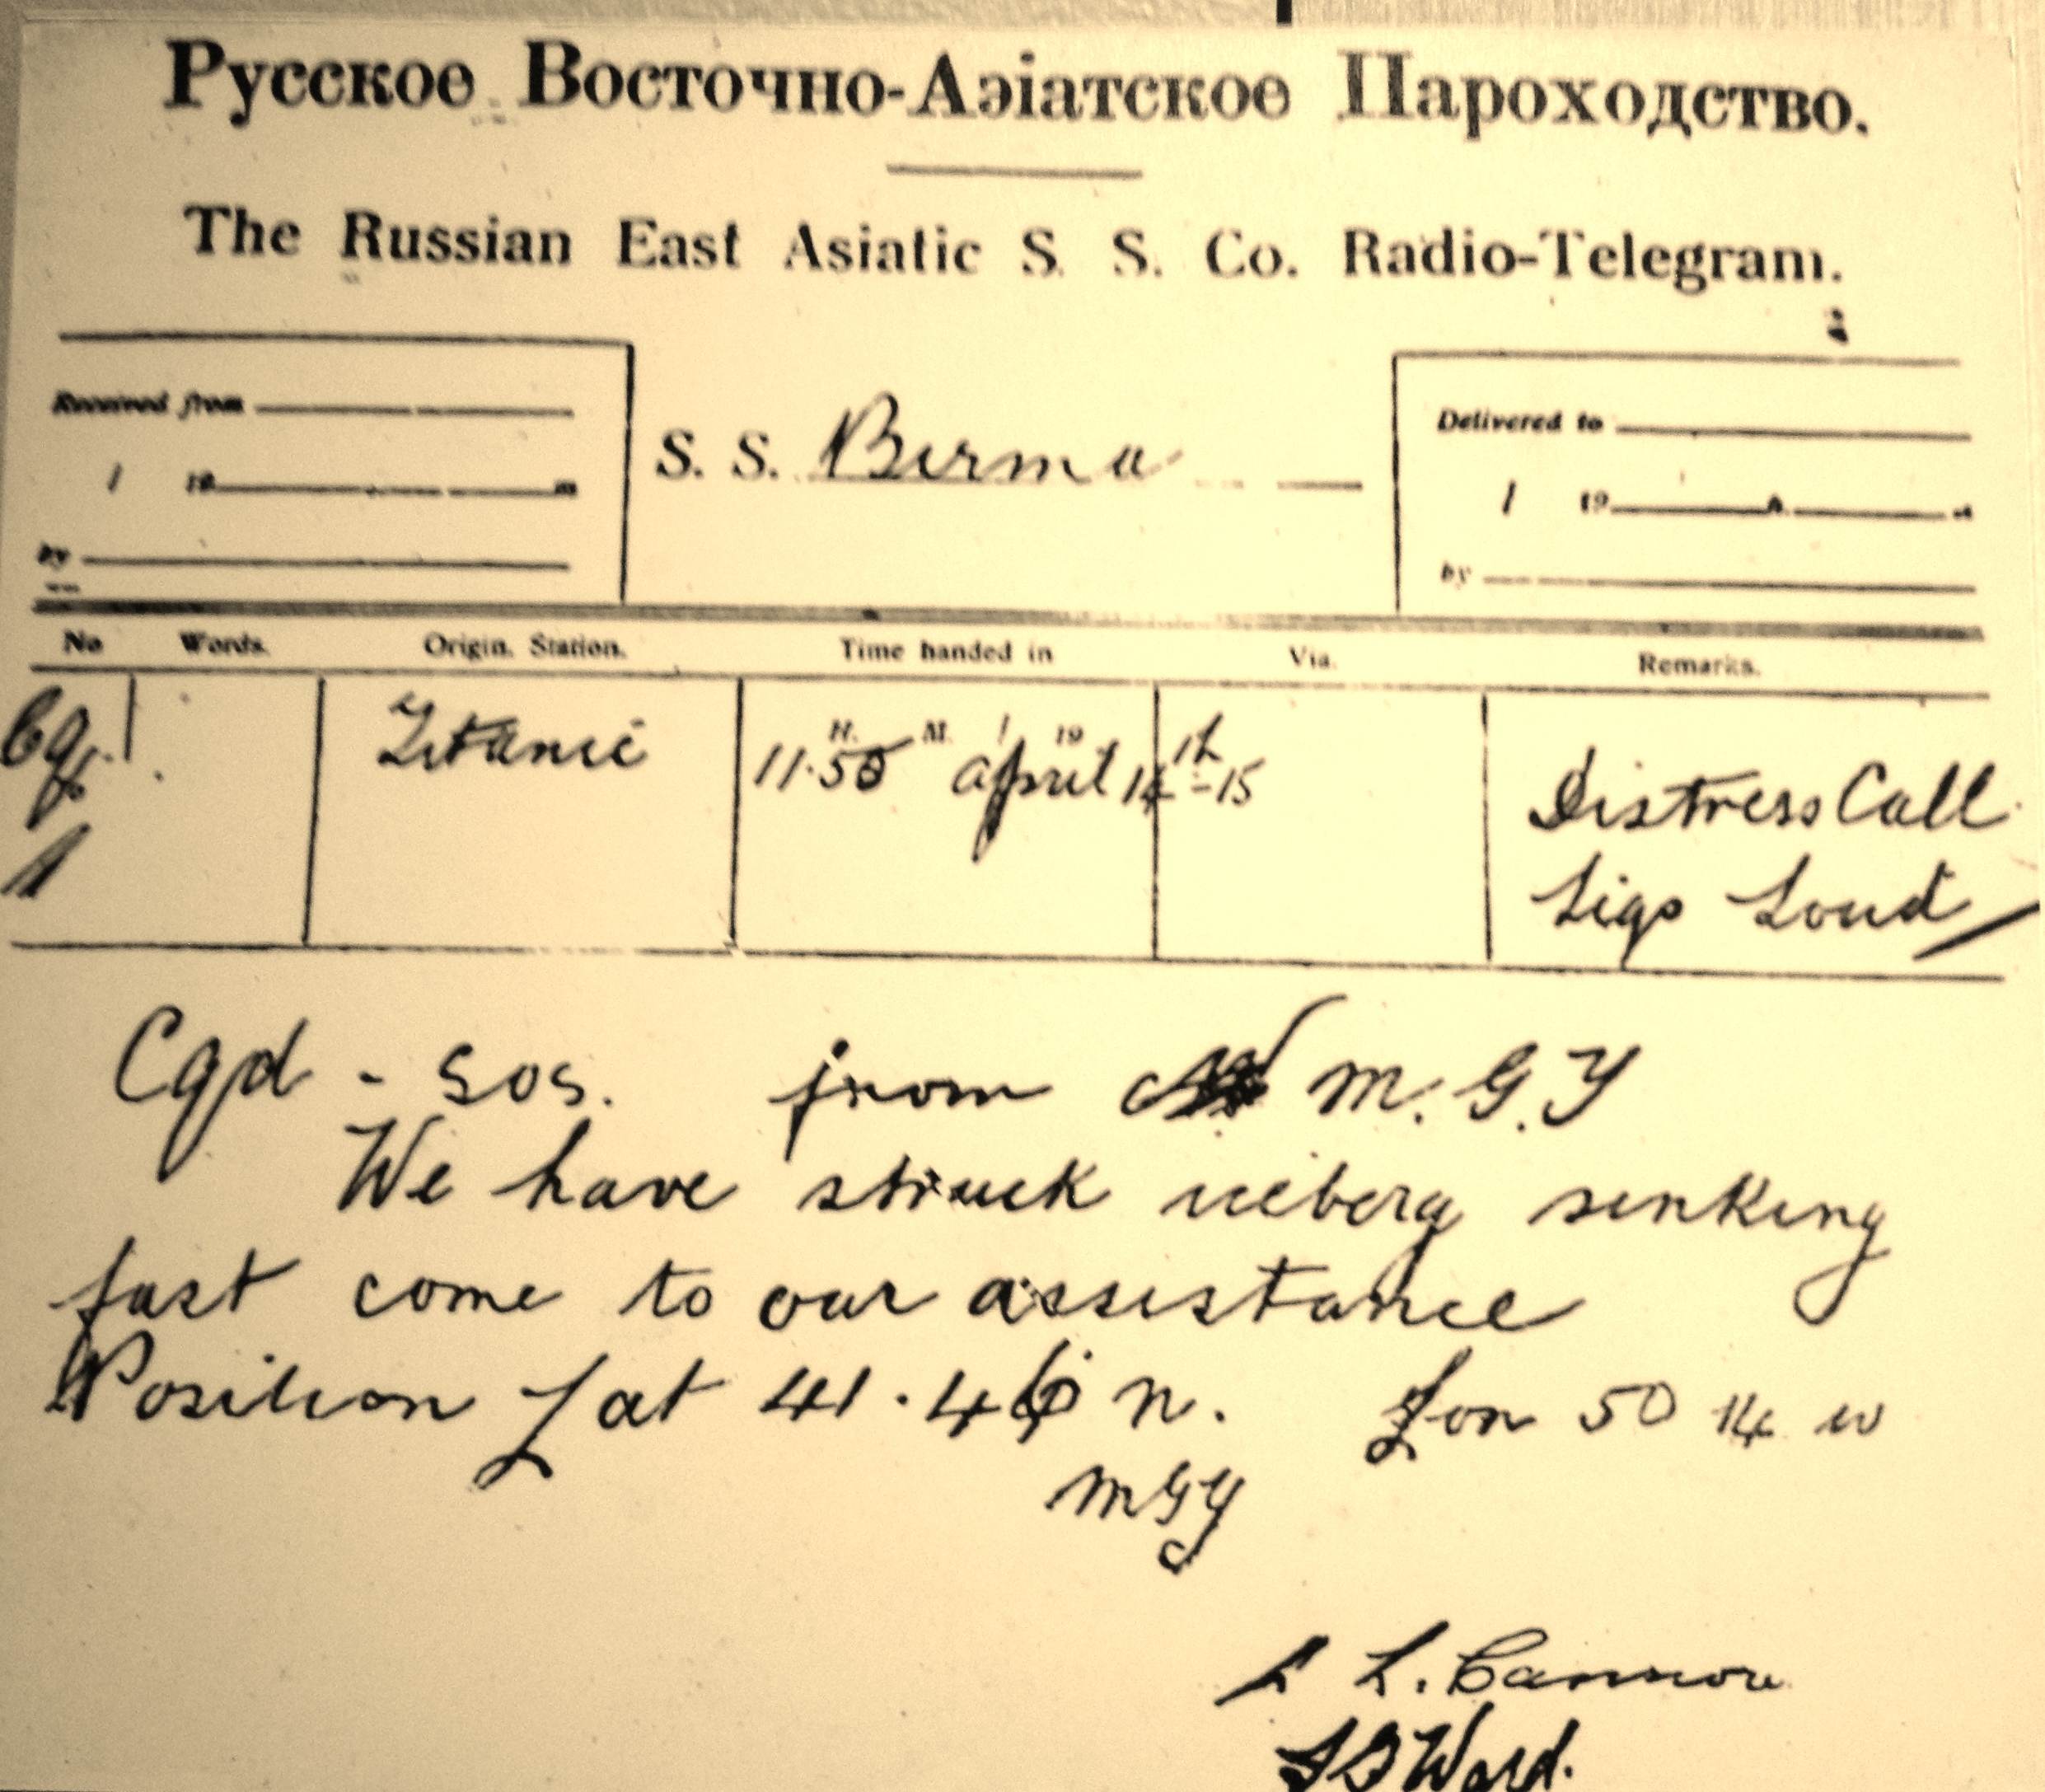 Русское Восточно-Азіатское Пароходство.
The Russian East Asiatic S. S. Co. Radio-Telegram.
Received from
Delivered to
S. S. Birma
1 19
1 19
by
by
No Words. Origin. Station. Time handed in Via. Remarks.
H. M. / 19
Cq. Titanic 11.50 April 14th-15 Distress Call
1 Sigs Loud
Cqd - SOS. from M.G.Y
We have struck iceberg sinking
fast come to our assistance
Position Lat 41.46 n. Lon 50 14 w
MGY
L. Cannon
Ward.